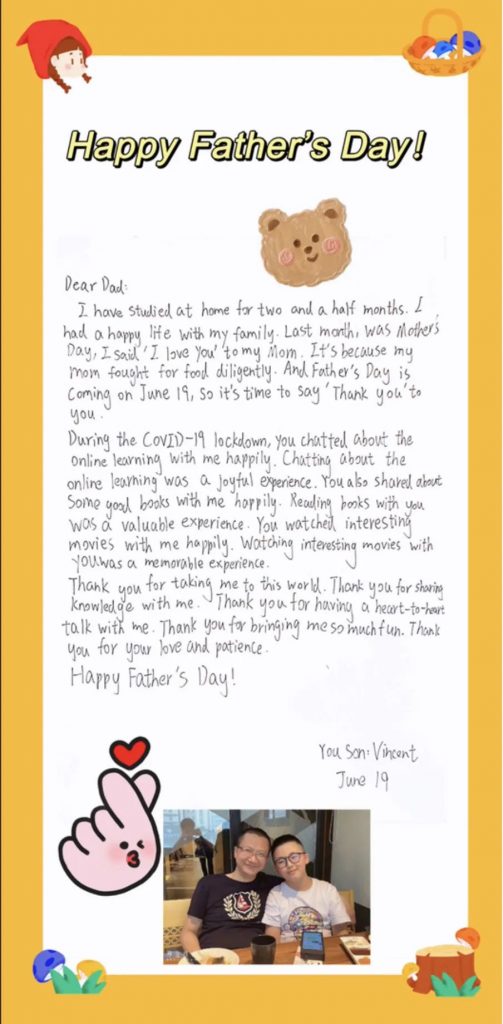 Happy Father's Day!
Dear Dad:
I have studied at home for two and a half months. I
had a happy life with my family. Last month, was Mother's
Day, I said 'I love you' to my Mom. It's because my
mom fought for food diligently. And Father's Day is
coming on June 19, so it's time to say 'Thank you' to
you.
During the COVID-19 lockdown, you chatted about the
online learning with me happily. Chatting about the
online learning was a joyful experience. You also shared about
some good books with me happily. Reading books with you
was a valuable experience. You watched interesting
movies with me happily. Watching interesting movies with
you was a memorable experience.
Thank you for taking me to this world. Thank you for sharing
knowledge with me. Thank you for having a heart-to-heart
talk with me. Thank you for bringing me so much fun. Thank
you for your love and patience.
Happy Father's Day!
You Son: Vincent
June 19